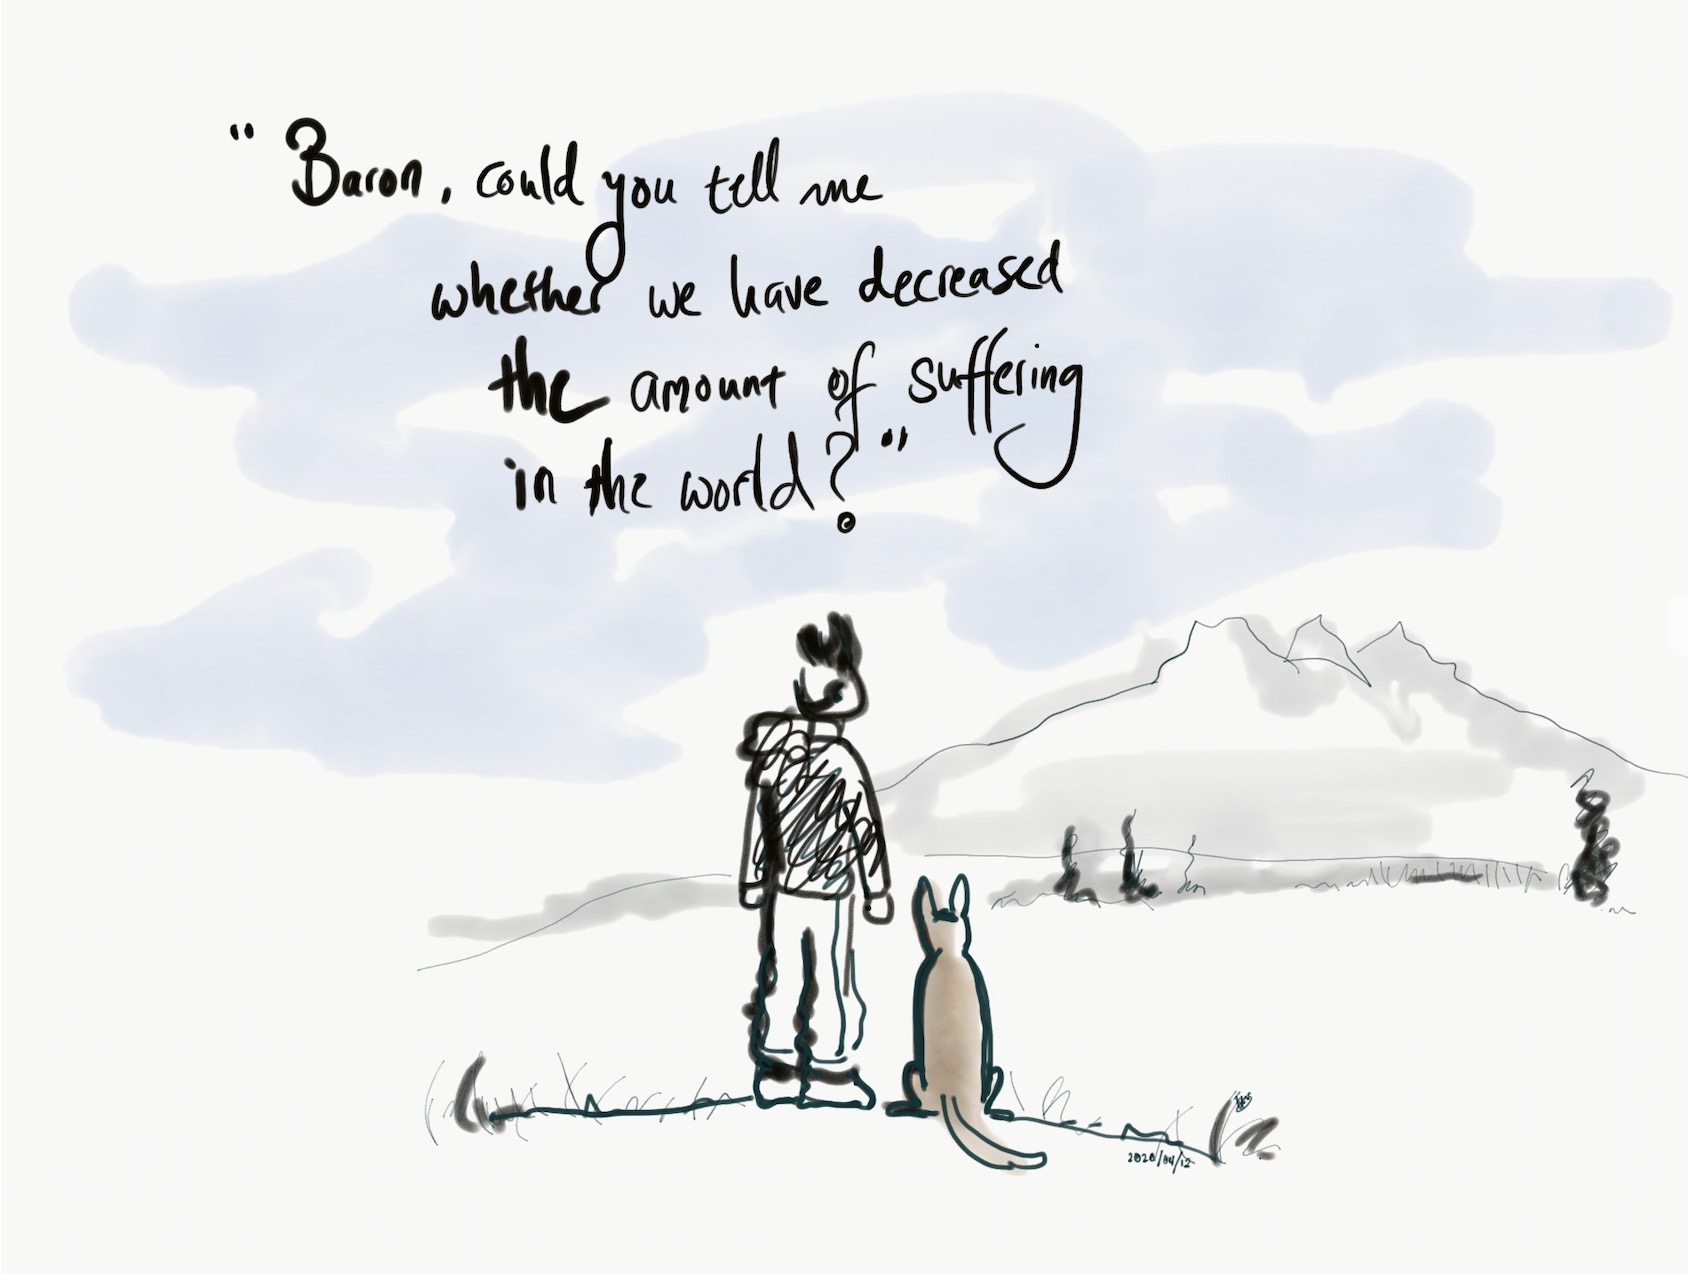 "Baron, could you tell me
whether we have decreased
the amount of suffering
in the world?"
2020/04/12